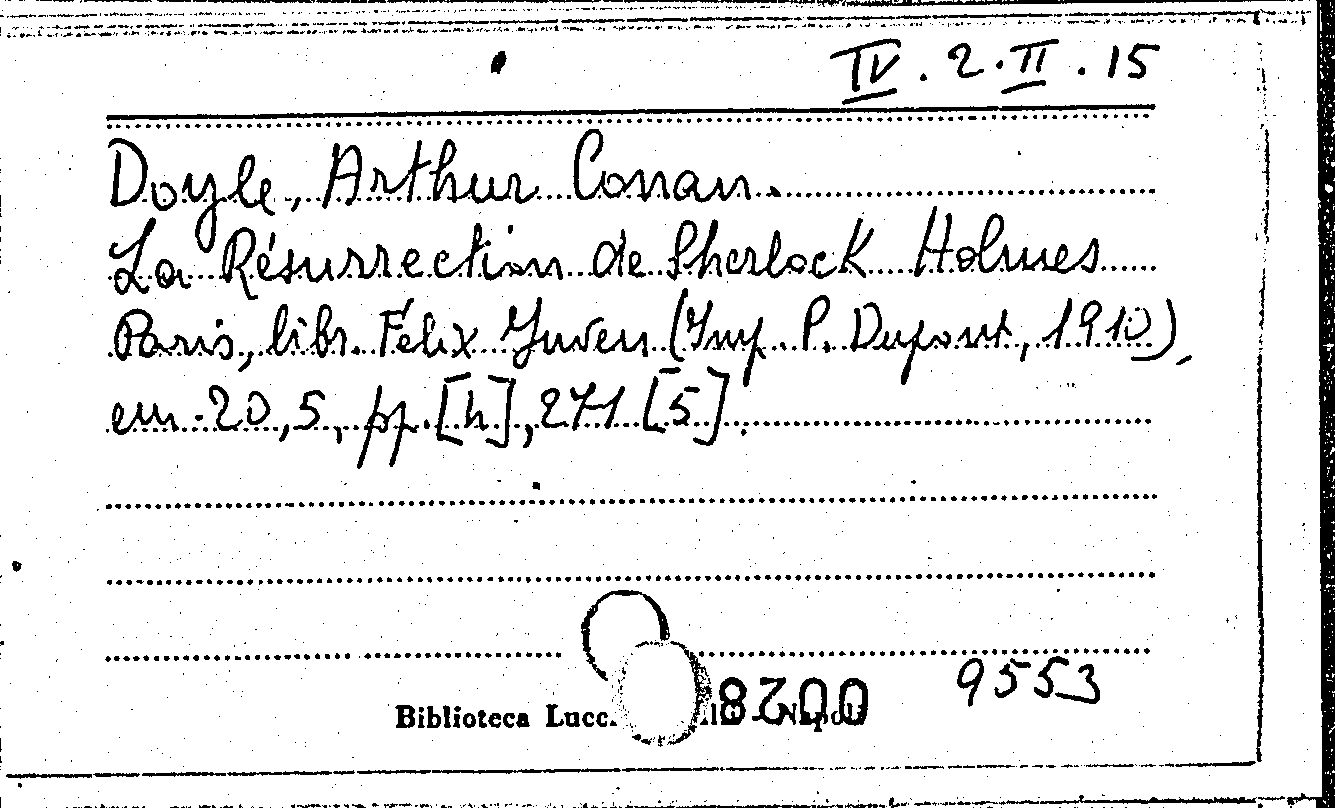 IV. 2. II. 15
Doyle, Arthur Conan.
La Résurrection de Sherlock Holmes
Paris, libr. Félix Juven (Imp. P. Dupont, 1910),
cm. 20,5, pp. [4], 271 [5].
9553
Biblioteca